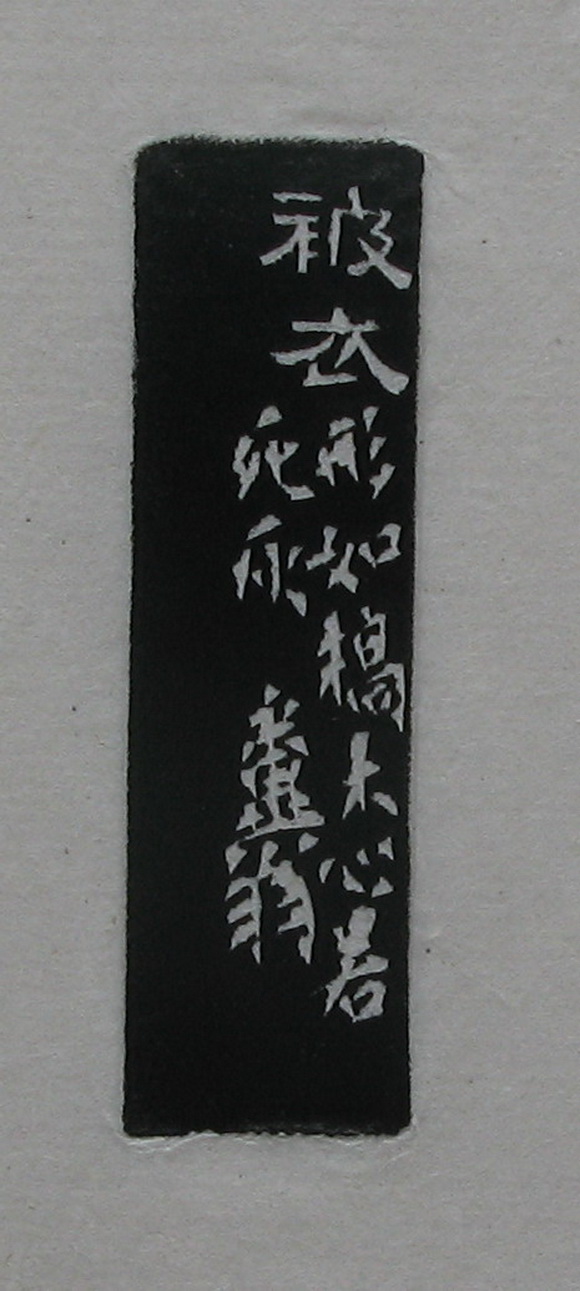 被衣
形如稿木心若
死灰
翁